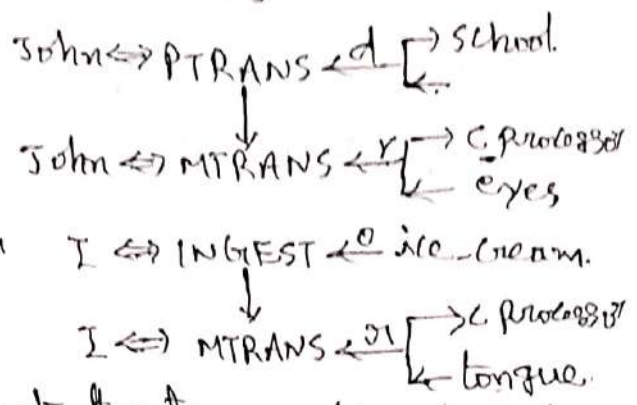 John ⇔ PTRANS ←d [→ school.
←.
↓
John ⇔ MTRANS ←r [→ C. Processor
← eyes
I ⇔ INGEST ←o ice-cream.
↓
I ⇔ MTRANS ←r [→ C. Processor
← tongue.